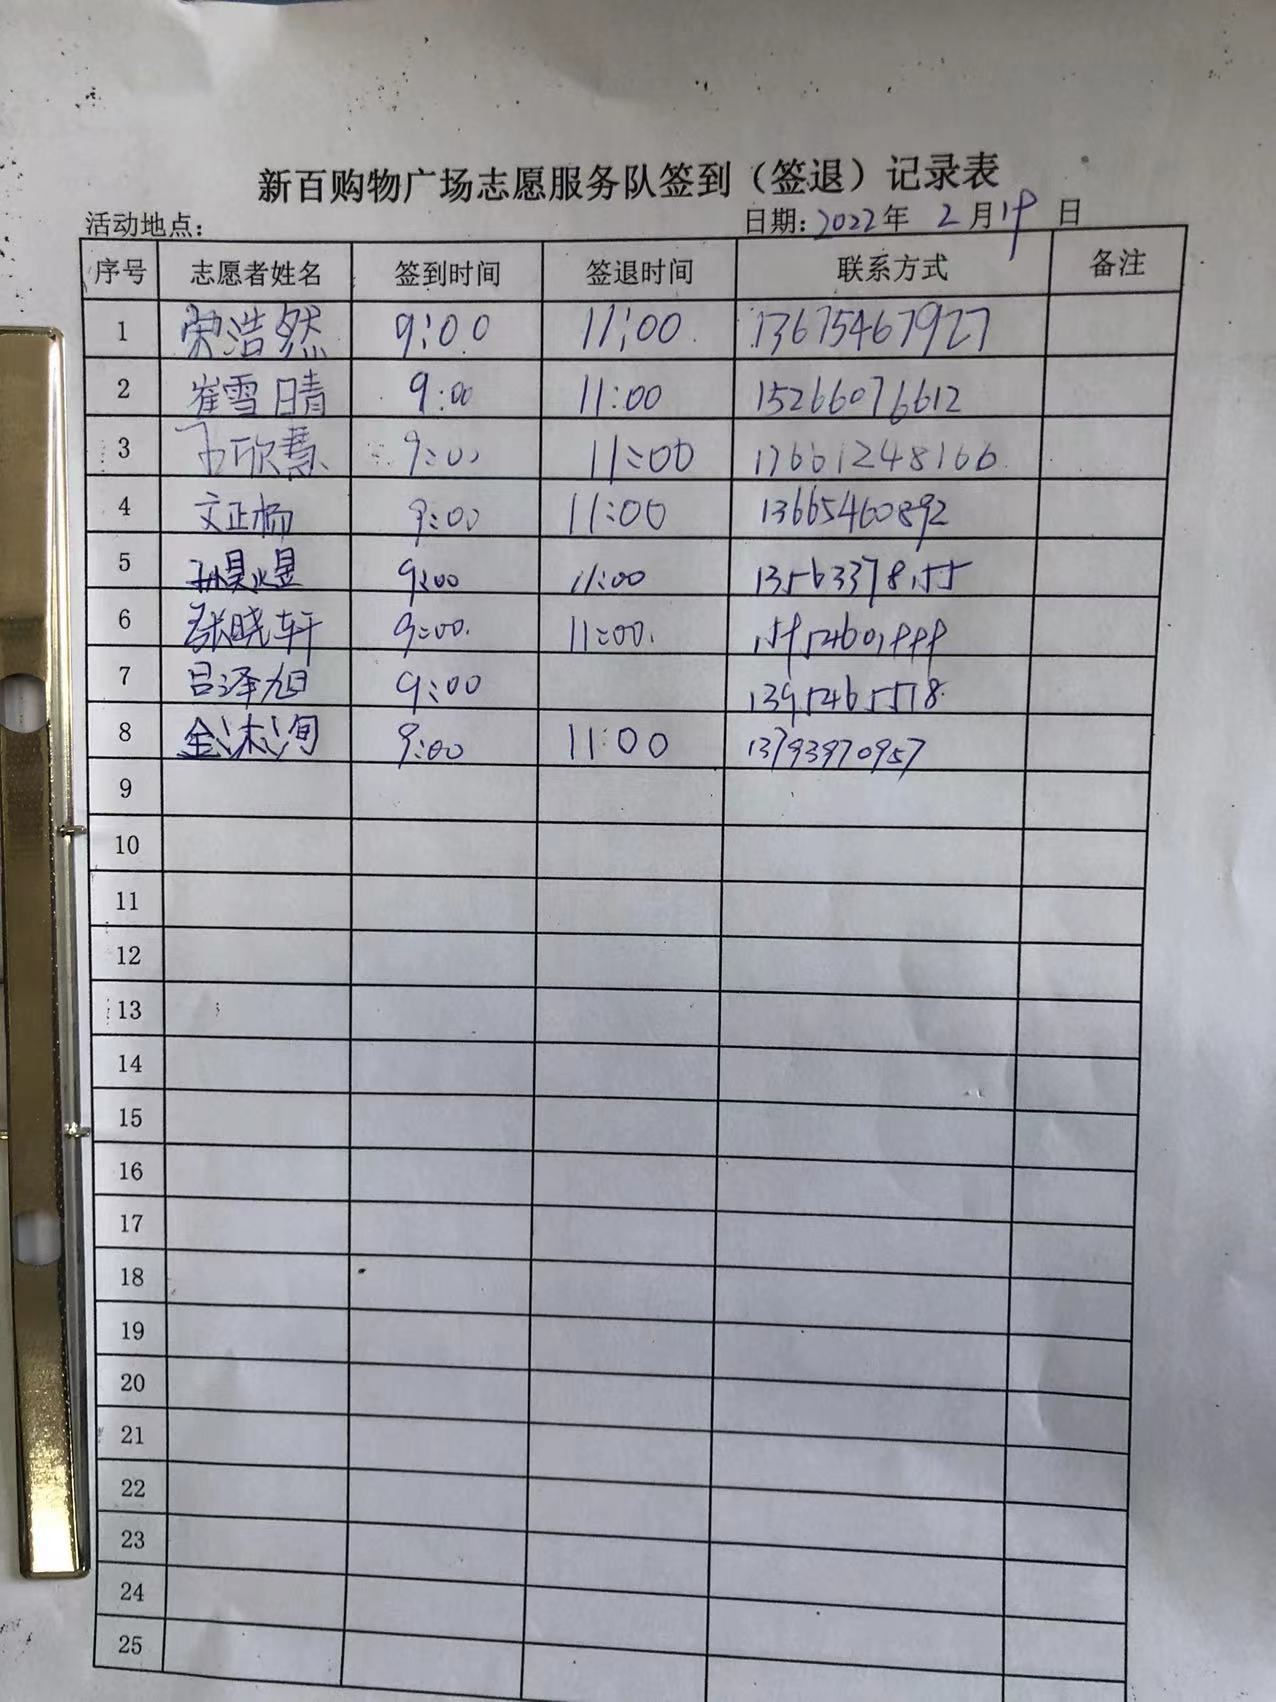 新百购物广场志愿服务队签到（签退）记录表
活动地点： 日期：2022年 2月19日
序号 志愿者姓名 签到时间 签退时间 联系方式 备注
1 荣浩然 9:00 11:00 13675467927
2 崔雪晴 9:00 11:00 15266076612
3 欣慧 9:00 11:00 17661248166
4 文正杨 9:00 11:00 13665460892
5 9:00 11:00 13563378155
6 张晓轩 9:00. 11:00. 15952601999
7 吕泽旭 9:00 13954655518
8 金沐洵 9:00 11:00 13793970957
9
10
11
12
13
14
15
16
17
18
19
20
21
22
23
24
25